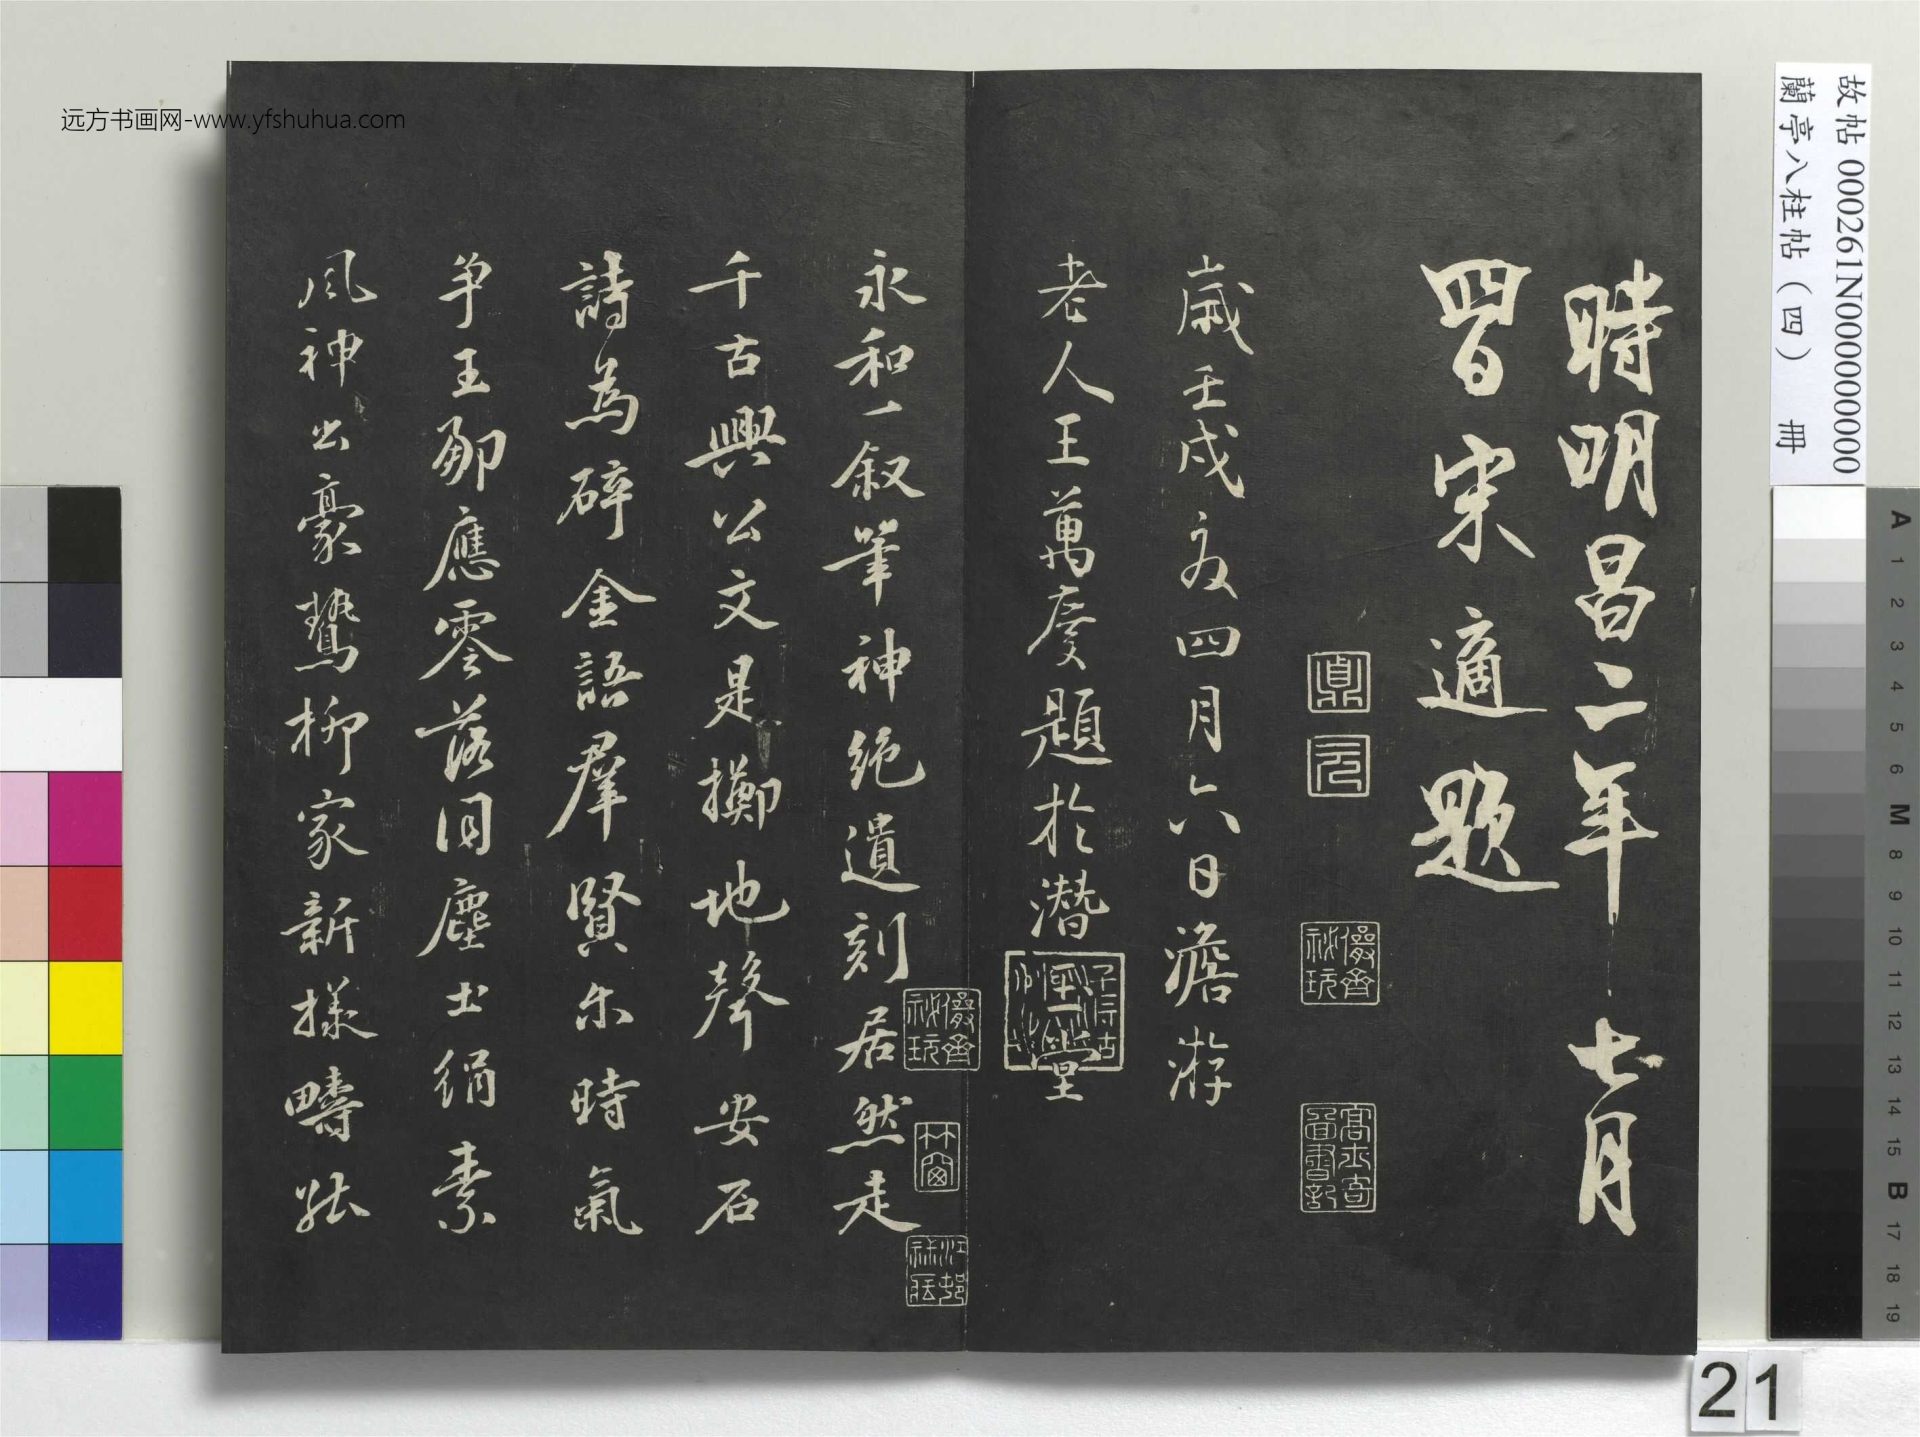 远方书画网-www.yfshuhua.com
故帖 000261N000000000
蘭亭八柱帖（四） 冊
時明昌二年七月
四日宋適題
鼎
元
儼齋秘玩
高士奇圖書記
歲壬戌夏四月六日澹游
老人王萬慶題於潛堂
永和一叙筆神絕遺刻居然走
儼齋秘玩
竹窗
江邨秘藏
千古興公文是擲地聲安石
詩為碎金語羣賢尔時氣
争王那應零落同塵土絹素
風神出豪鷙柳家新様疇能
A 1 2 3 4 5 6 M 8 9 10 11 12 13 14 15 B 17 18 19
21